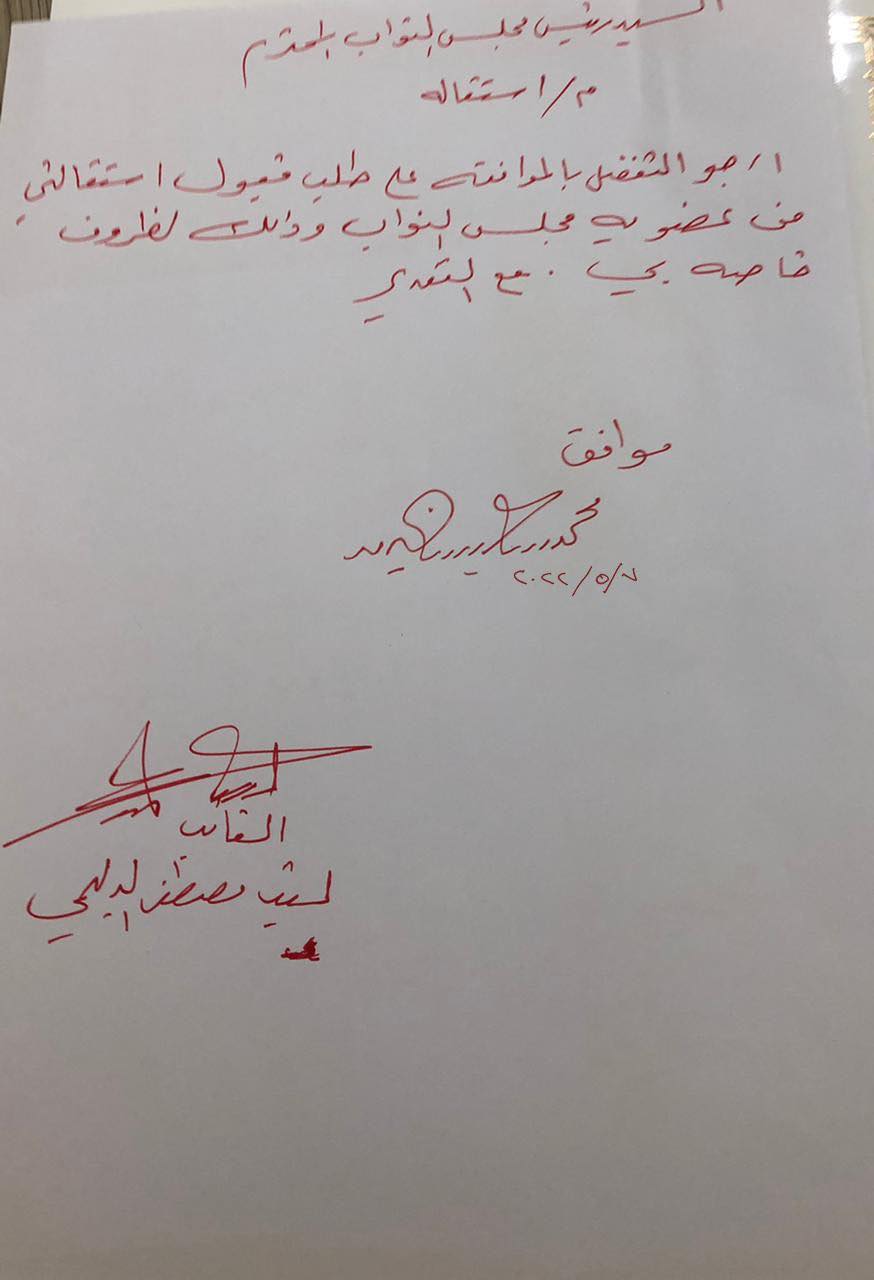 السيد رئيس مجلس النواب المحترم
م/ استقاله
ارجو التفضل بالموافقه على طلب قبول استقالتي
من عضويه مجلس النواب وذالك لظروف
خاصه بي . مع التقدير
موافق
محمد
٢٠٢٢/٥/٧
النائب
ليث مصطفى الدليمي